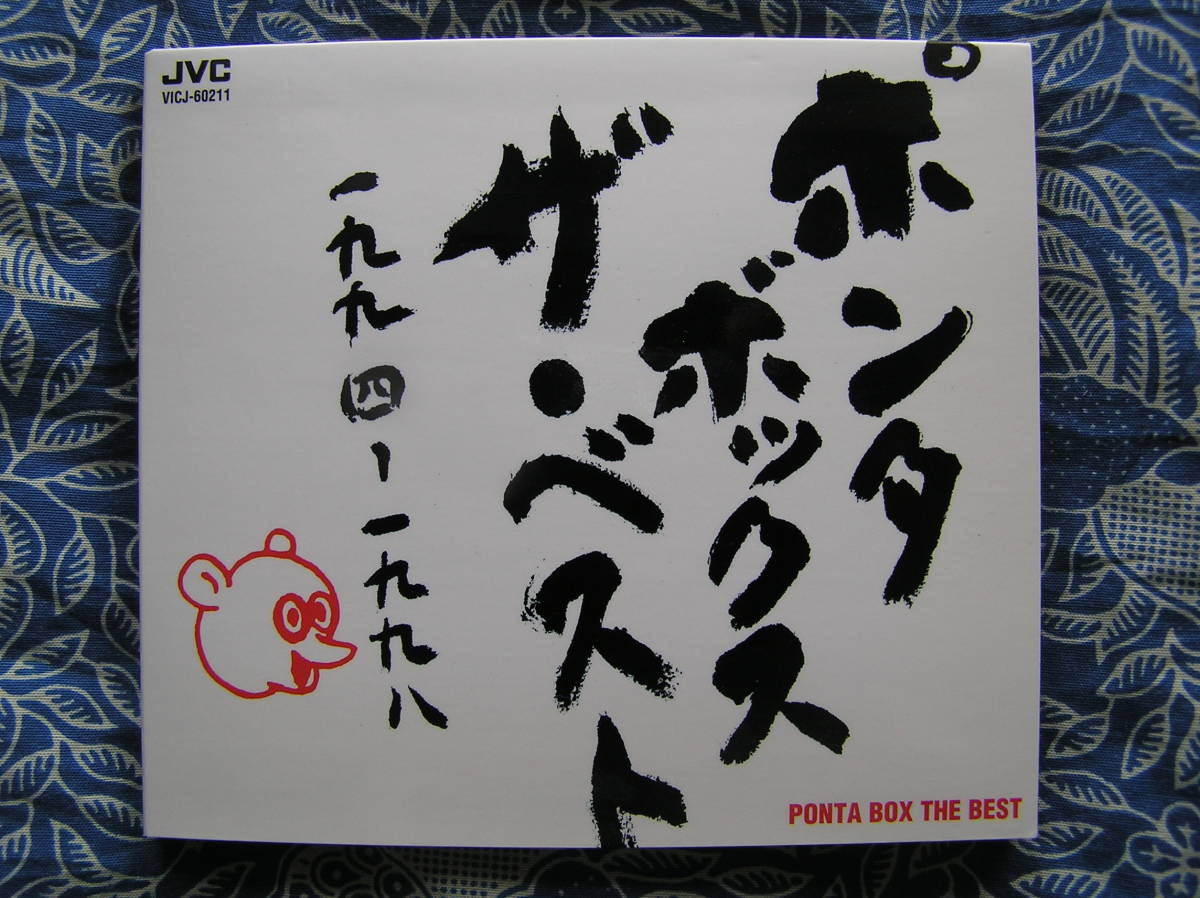 JVC
VICJ-60211
ポンタ
ボックス
ザ・ベスト
一九九四-一九九八
PONTA BOX THE BEST